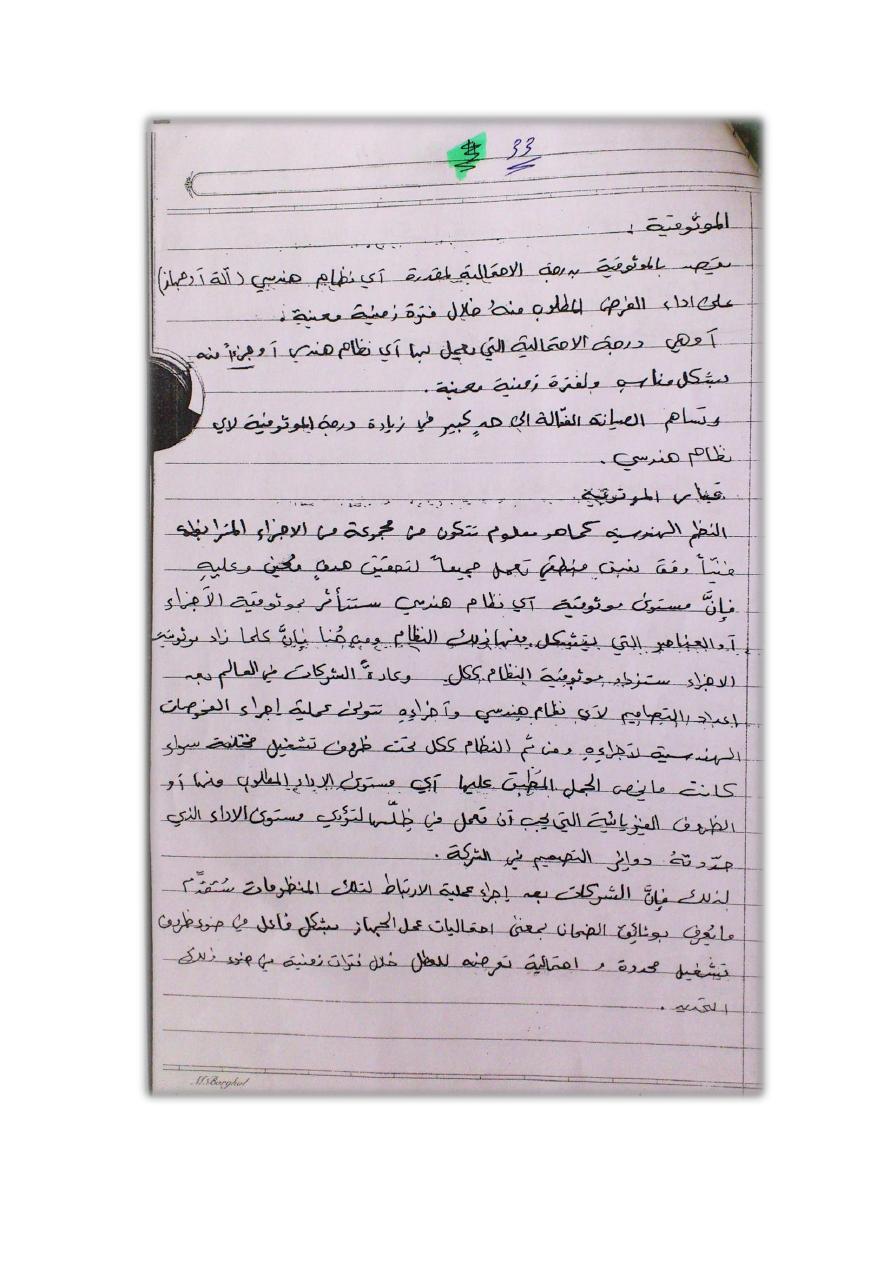 33
الموثوقية :
يقصد بالموثوقية بدرجة الاحتمالية لمقدرة آي نظام هندسي (آلة أوجهاز)
على اداء الغرض المطلوب منهُ خلال فترة زمنية معينة .
أوهي درجة الاحتمالية التي يعمل بها آي نظام هندسي أوجزءاً منه
بشكل مناسب ولفترة زمنية معينة .
وتساهم الصيانة الفعّالة الى حدٍ كبير في زيادة درجة الموثوقية لاي
نظام هندسي .
قياس الموثوقية
النظم الهندسية كماهو معلوم تتكون من مجموعة من الاجزاء المترابطة
فنيّاً وفق نسق منطقي تعمل جميعاً لتحقيق هدفٍ معين وعليهِ
فإنَّ مستوى موثوقية آي نظام هندسي ستتأثر بموثوقية الأجزاء
أو العناصر التي يتشكل منها ذلك النظام ومن هُنا فإنَّ كلما زاد موثوقية
الاجزاء ستزداد موثوقية النظام ككل وعادةً الشركات في العالم بعد
إعداد التصاميم لآي نظام هندسي وأجزاءهِ تتولى عملية إجراء الفحوصات
الهندسية لآجزاءِهِ ومن ثم النظام ككل تحت ظروف تشغيل مختلفة سواء
كانت مايخص الحمل المطبق عليها آي مستوى الاداء المطلوب منها أو
الظروف الفيزيائية التي يجب أن تعمل في ظلّها لتؤدي مستوى الاداء الذي
حدّدتهُ دوائر التصميم في الشركة .
لذلك فإنَّ الشركات بعد إجراء عملية الارتباط لتلك المنظومات ستُقدَّم
مايُعرف بوثائق الضمان بمعنى احتماليات عمل الجهاز بشكل فاعل في ضوء ظروف
تشغيل محددة و احتمالية تعرضه للعطل خلال فترات زمنية في ضوء ذلك
التحديد .
M.Barghol